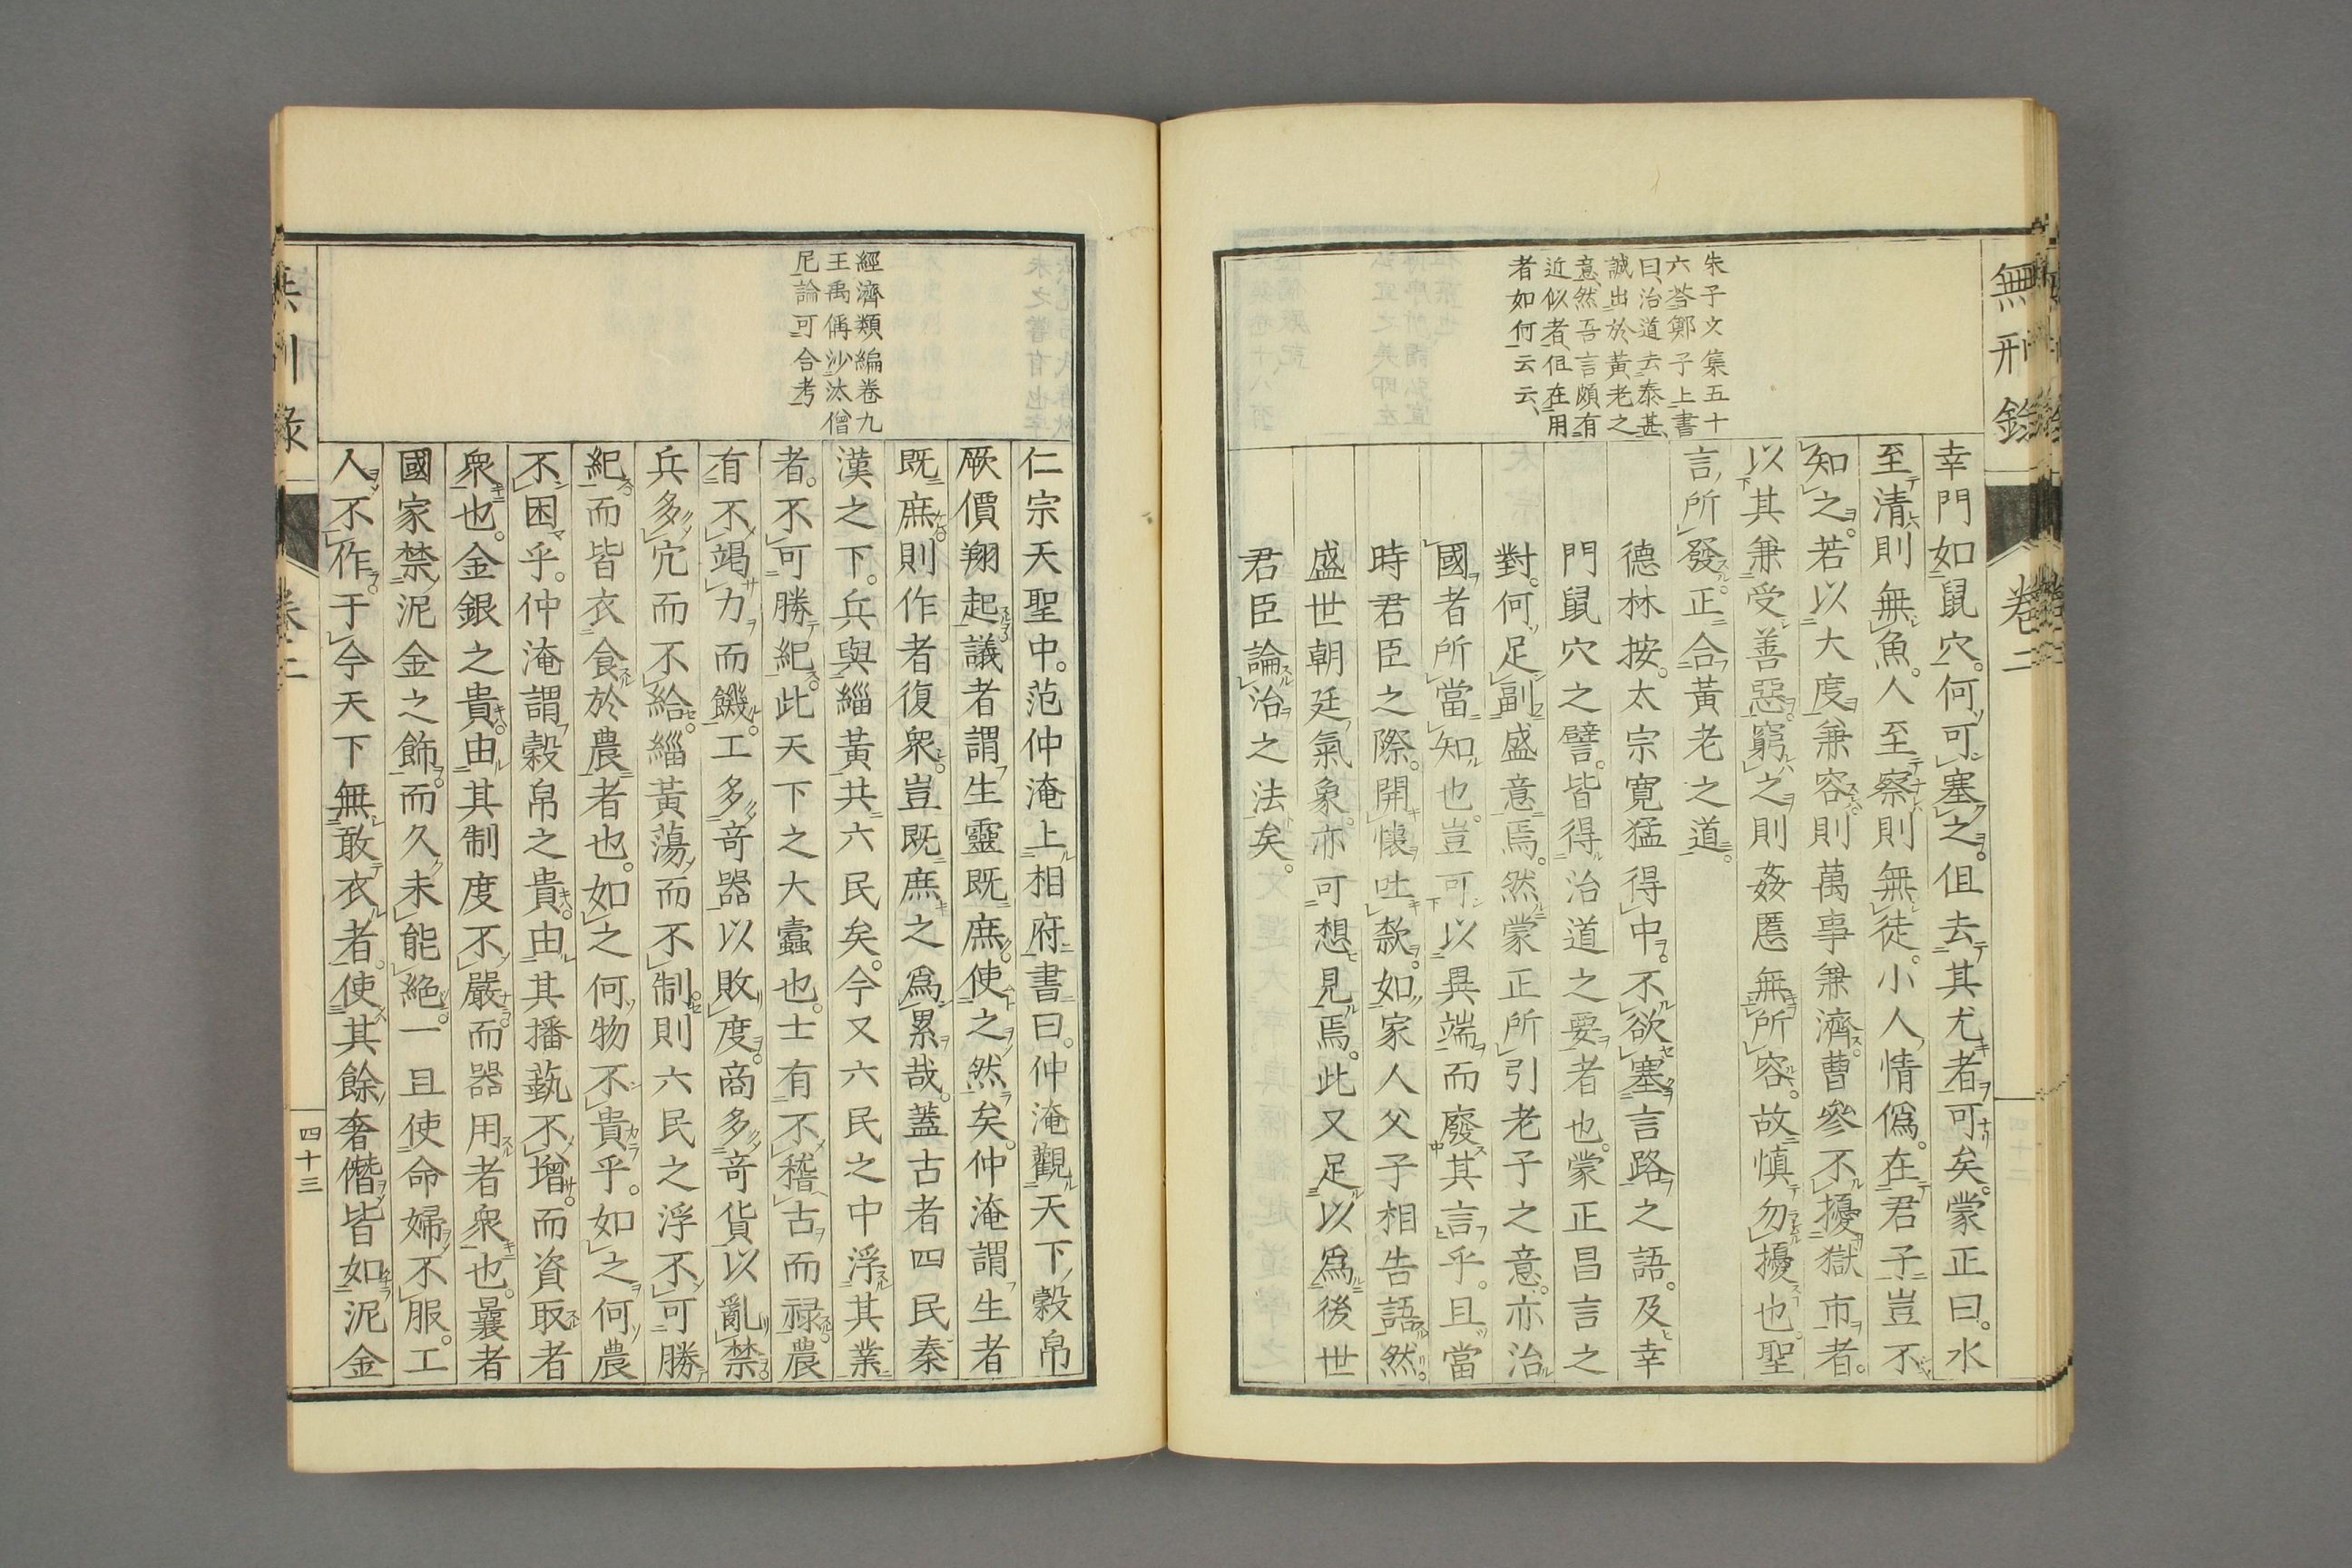 無刑錄
卷二
朱子文集五十
六荅鄭子上書
曰、治道去泰甚、
誠出於黃老之
意、然吾言頗有
近似者、但在用
者如何云云、
幸門如鼠穴。何可塞之。但去其尤者可矣。蒙正曰。水
至清則無魚。人至察則無徒。小人情僞。在君子豈不
知之。若以大度兼容則萬事兼濟。曹參不擾獄市者。
以其兼受善惡。窮之則姦慝無所容。故愼勿擾也。聖
言所發。正合黃老之道。
德林按。太宗寬猛得中。不欲塞言路之語。及幸
門鼠穴之譬。皆得治道之要者也。蒙正昌言之
對。何足副盛意焉。然蒙正所引老子之意。亦治
國者所當知也。豈可以異端而廢其言乎。且當
時君臣之際。開懷吐欵。如家人父子相告語然。
盛世朝廷氣象。亦可想見焉。此又足以爲後世
君臣論治之法矣。
經濟類編卷九
王禹偁沙汰僧
尼論可合考
仁宗天聖中。范仲淹上相府書曰。仲淹觀天下穀帛
厥價翔起。議者謂生靈既庶。使之然矣。仲淹謂生者
既庶。則作者復衆。豈既庶之爲累哉。蓋古者四民秦
漢之下。兵與緇黃共六民矣。今又六民之中浮其業
者。不可勝紀。此天下之大蠹也。士有不稽古而祿。農
有不竭力而饑。工多奇器以敗度。商多奇貨以亂禁。
兵多冗而不給。緇黃蕩而不制。則六民之浮不可勝
紀。而皆衣食於農者也。如之何物不貴乎。如之何農
不困乎。仲淹謂穀帛之貴。由其播藝不增。而資取者
衆也。金銀之貴。由其制度不嚴。而器用者衆也。曩者
國家禁泥金之飾。而久未能絕。一旦使命婦不服。工
人不作。于今天下無敢衣者。使其餘奢僭皆如泥金
無刑錄
卷二
四十三